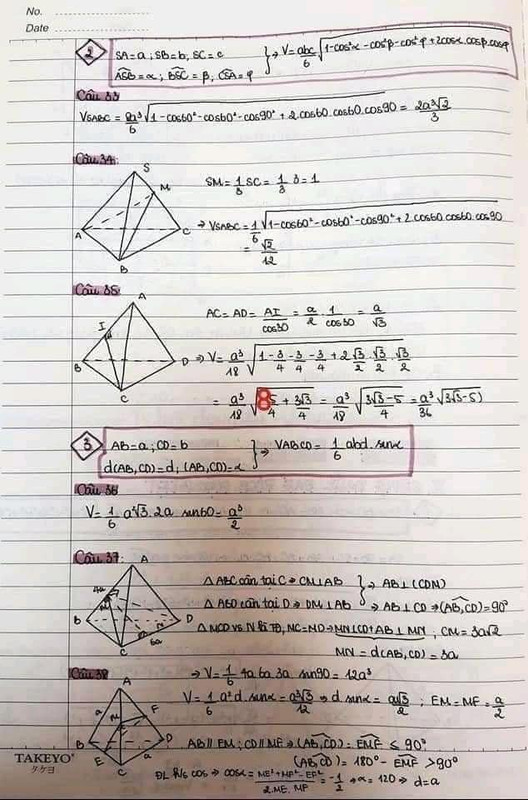 No.
Date
2
SA=a ; SB=b, SC=c } → V=abc/6 √(1-cos²α-cos²β-cos²φ+2cosα.cosβ.cosφ)
ASB=α ; BSC=β, CSA=φ
Câu 33
VSABC= 2a³/6 √(1-cos60²-cos60²-cos90²+2.cos60.cos60.cos90) = 2a³√2/3
Câu 34:
S
M
A
C
B
SM=1/3 SC=1/3 3=1
→ VSABC=1/6 √(1-cos60²-cos60²-cos90²+2cos60cos60.cos90)
=√2/12
Câu 35
A
I
B
D
C
AC=AD= AI/cos30 = a/2 . 1/cos30 = a/√3
→ V= a³/18 √(1-3/4-3/4-3/4+2√3/2.√3/2.√3/2)
= a³/18 √(85/4+3√3/4) = a³/18 √((3√3-5)/4) = a³/36 √(3√3-5)
3
AB=a ; CD=b } → VABCD= 1/6 abd.sinα
d(AB,CD)=d, (AB,CD)=α
Câu 36
V=1/6 a²√3.2a sin60= a³/2
Câu 37:
A
4a
B
D
M
N
C
6a
Δ ABC cân tại C → CM⊥AB } → AB⊥(CDM)
Δ ABD cân tại D → DM⊥AB → AB⊥CD →(AB,CD)=90°
Δ MCD vs N là TĐ, MC=MD→ MN⊥CD+AB⊥MN, CM=3a√2
MN=d(AB,CD)=3a
→ V=1/6 4a 6a 3a sin90= 12a³
Câu 38
A
a
M
F
B
D
E
a
C
V=1/6 a²d.sinα=a³√3/12 → d sinα=a√3/2 ; EM=MF=a/2
AB∥EM; CD∥MF→(AB,CD)=EMF ≤ 90°
(AB,CD)=180°-EMF >90°
ĐL h/s cos → cosα= ME²+MF²-EF²/2.ME.MF = -1/2 → α=120 → d=a
TAKEYO®
タケヨ